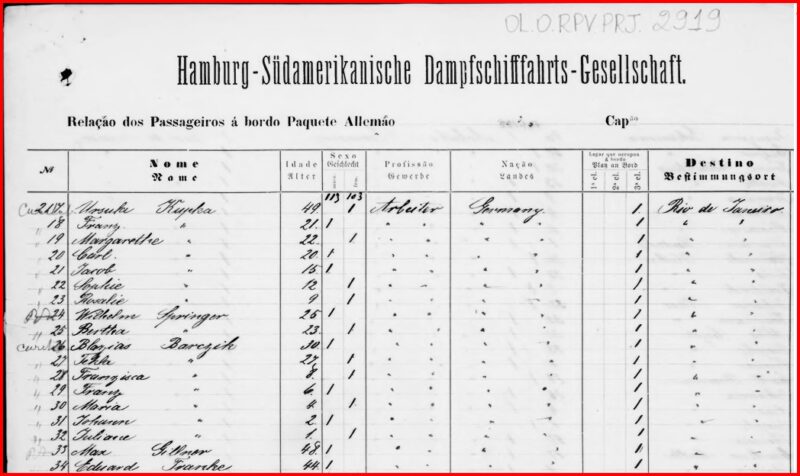 OL.O.RPV.PRJ. 2919
Hamburg-Südamerikanische Dampfschifffahrts-Gesellschaft.
Relação dos Passageiros á bordo Paquete Allemão Cap
№ Nome Name Idade Alter Sexo Geschlecht Profissão Gewerbe Nação Landes Lugar que occupa á bordo Platz an Bord 1ª cl. 2ª cl. 3ª cl. Destino Bestimmungsort
113 103
217 Ursula Kupka 49. 1 Arbeiter Germany. 1. Rio de Janeiro
18 Franz " 21. 1 " " 1 " "
19 Margarethe " 22. 1 " " 1 " "
20 Carl. " 20. 1 " " 1 " "
21 Jacob " 15. 1 " " 1 " "
22 Sophie " 12 1 " " 1 " "
23 Rosalie " 9 1 " " 1 " "
24 Wilhelm Springer 25. 1 " " 1 " "
25 Bertha " 23. 1 " " 1 " "
26 Blasius Barczik 30. 1 " " 1 " "
27 Thekla " 27. 1 " " 1 " "
28 Franzisca " 8. 1 " " 1 " "
29 Franz " 6. 1 " " 1 " "
30 Maria " 4. 1 " " 1 " "
31 Johann " 2. 1 " " 1 " "
32 Juliane " 1. 1 " " 1 " "
33 Max Gillner 48. 1 " " 1 " "
34 Eduard Franke 44. 1 " " 1 " "